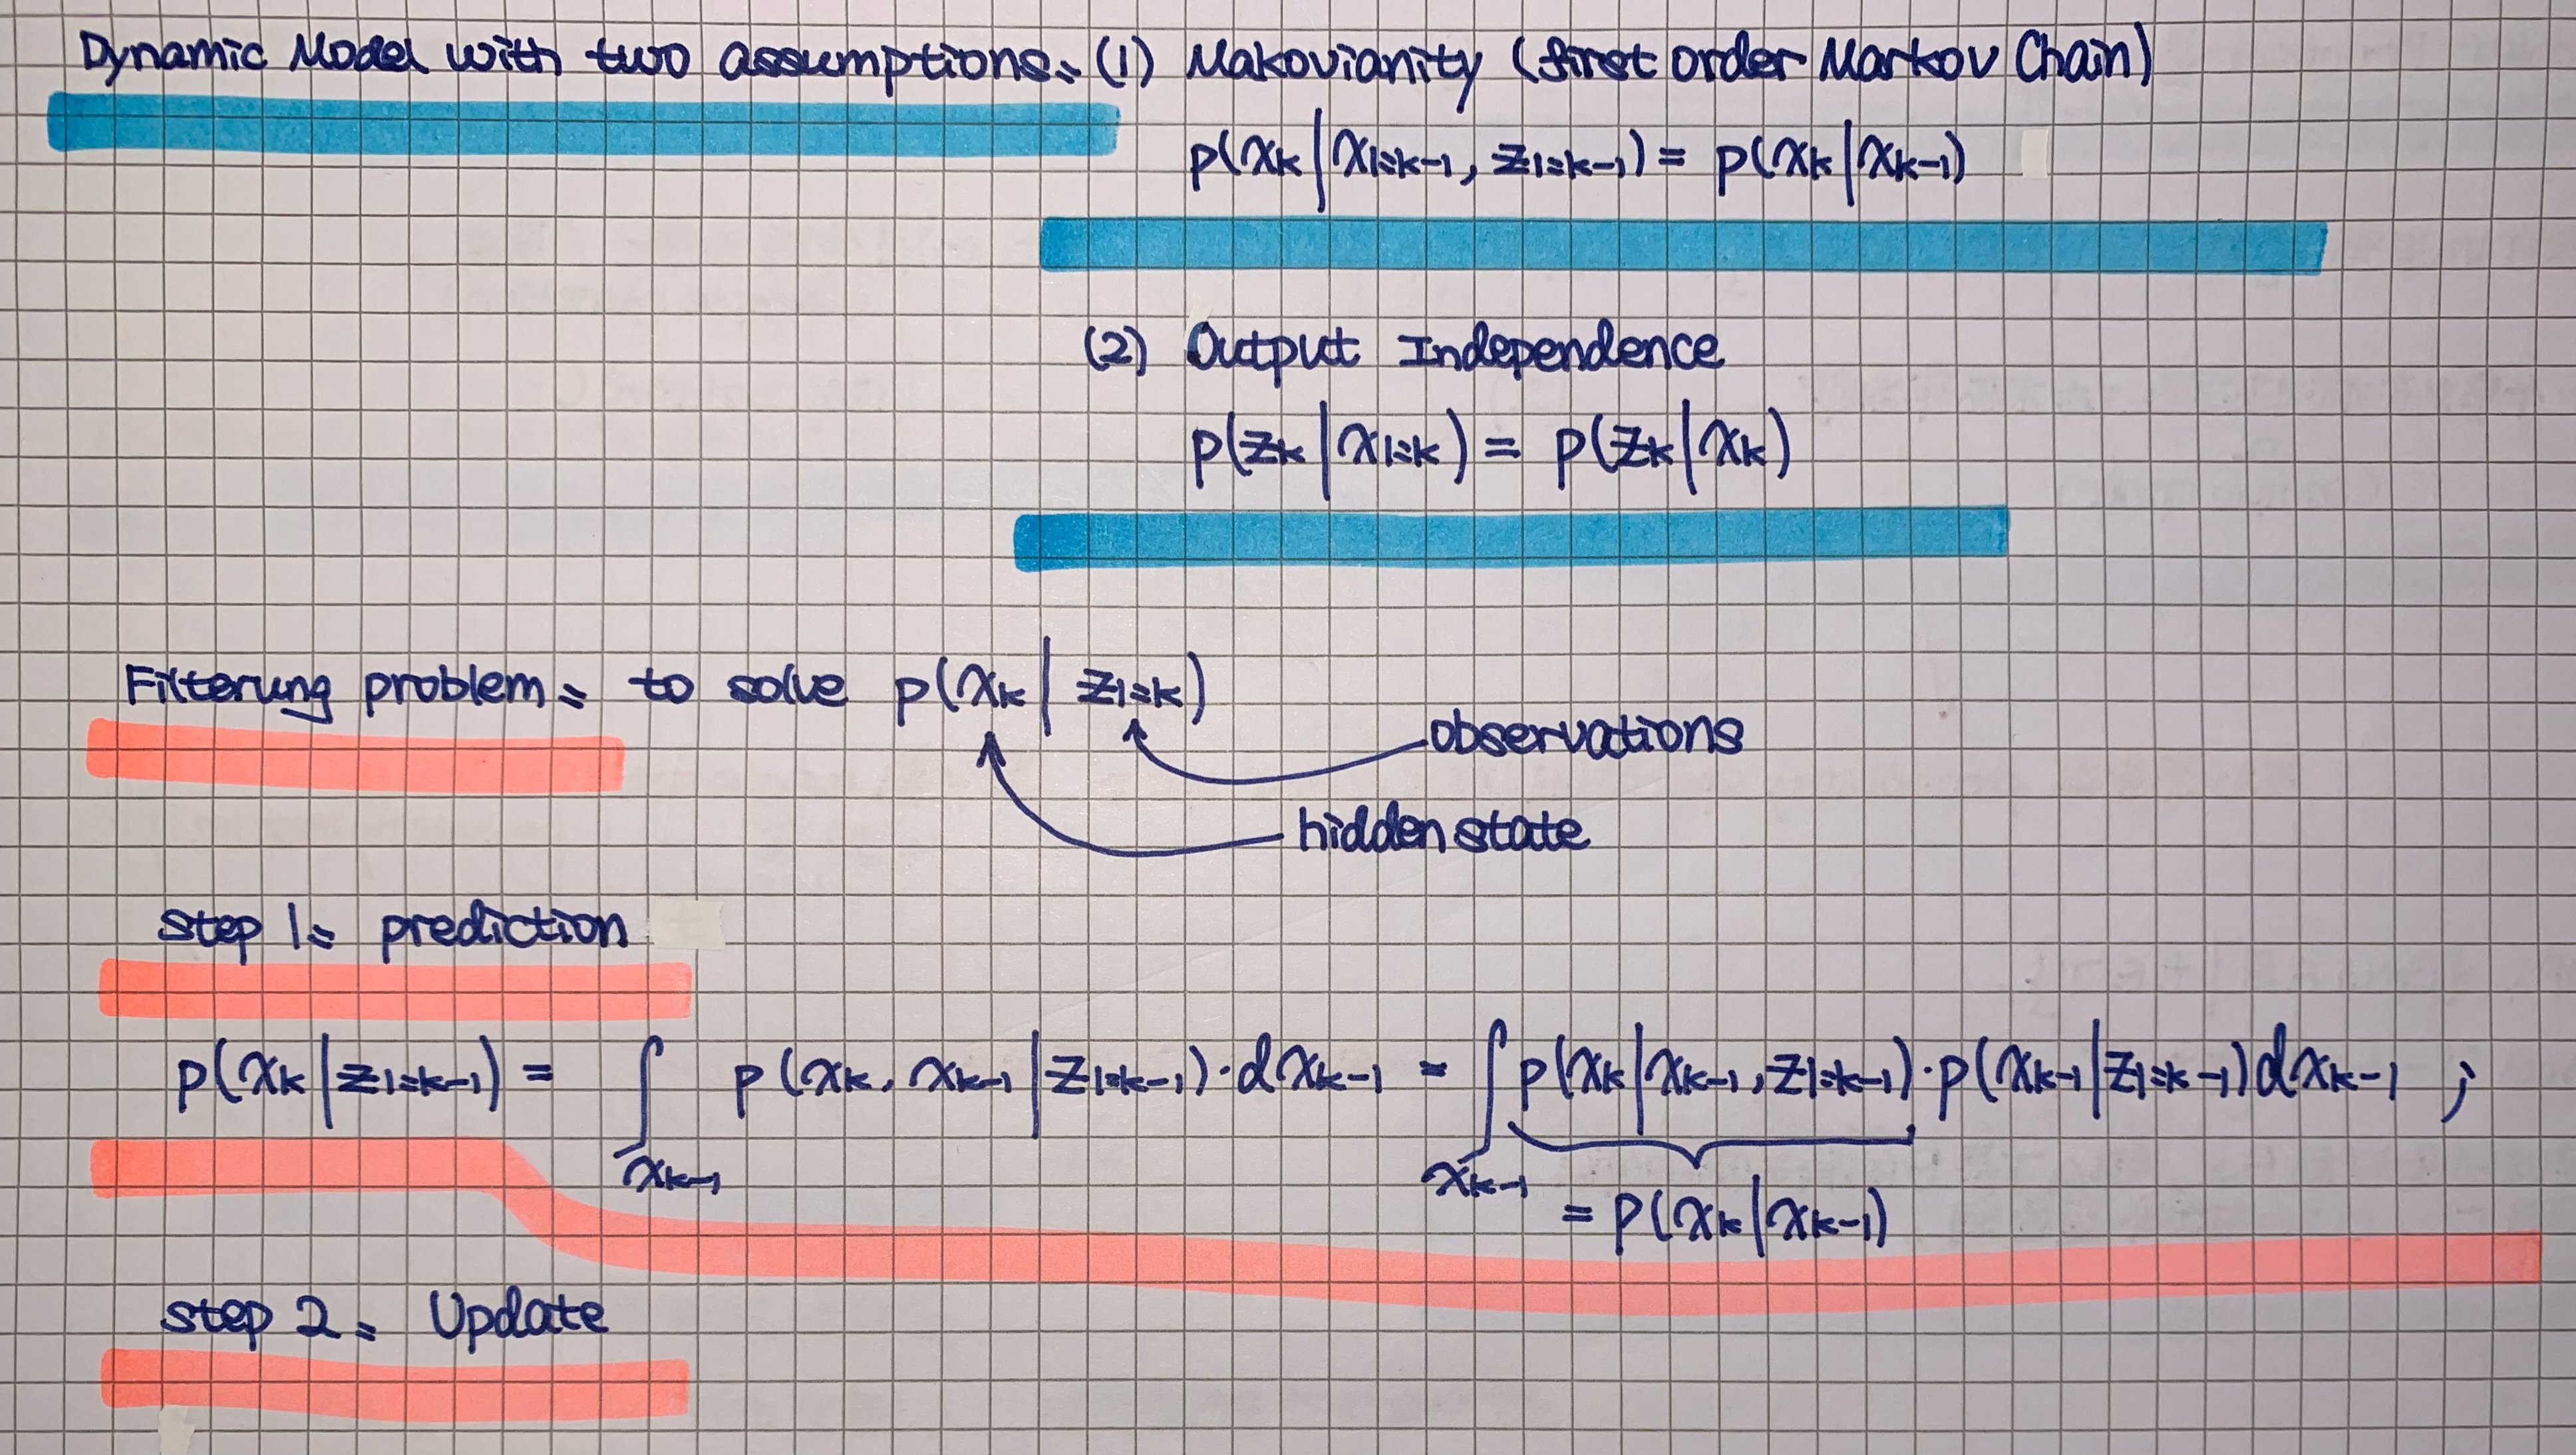 Dynamic Model with two assumptions: (1) Makovianity (first order Markov Chain)
p(xₖ | x₁:ₖ₋₁, z₁:ₖ₋₁) = p(xₖ | xₖ₋₁)
(2) Output Independence
p(zₖ | x₁:ₖ) = p(zₖ | xₖ)
Filterung problem: to solve p(xₖ | z₁:ₖ)
observations
hidden state
step 1: prediction
p(xₖ | z₁:ₖ₋₁) = ∫ p(xₖ, xₖ₋₁ | z₁:ₖ₋₁) · dxₖ₋₁ = ∫ p(xₖ | xₖ₋₁, z₁:ₖ₋₁) · p(xₖ₋₁ | z₁:ₖ₋₁) dxₖ₋₁ ;
xₖ₋₁ xₖ₋₁
= p(xₖ | xₖ₋₁)
step 2: Update